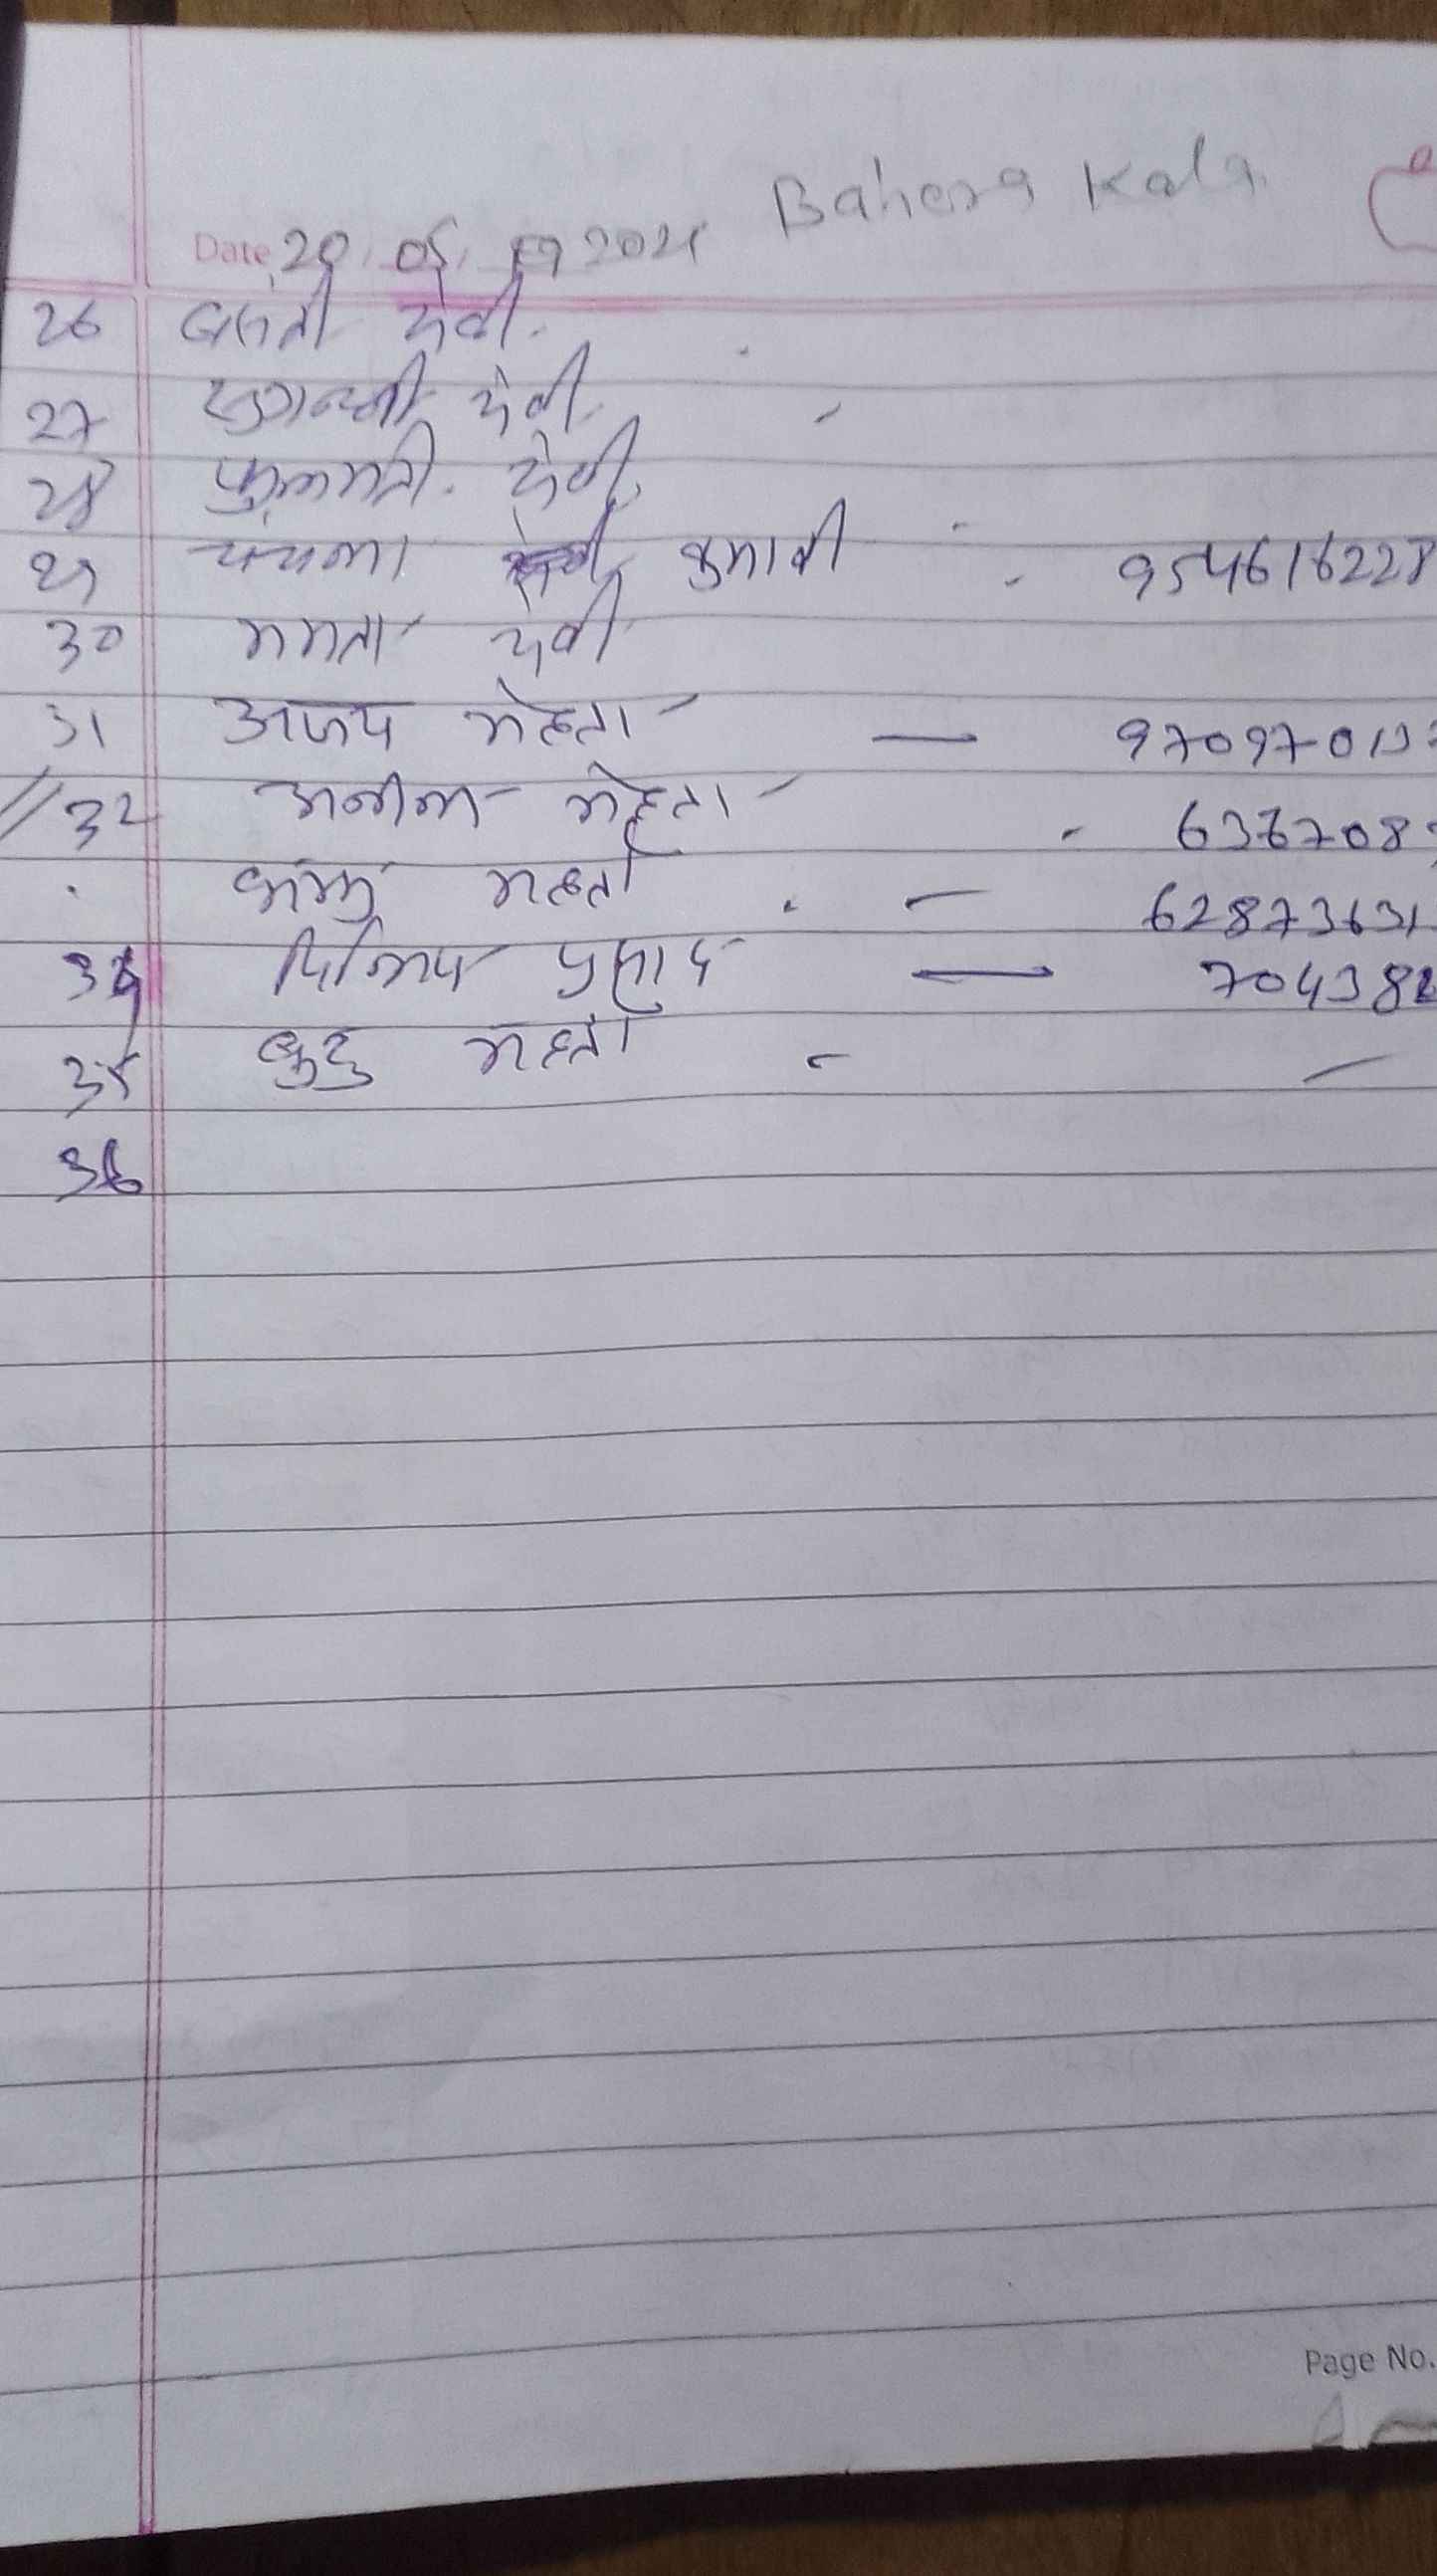 Bahera Kala
Date 20 05 2021
26 बसंती देवी
27 सुगन्ती देवी
28 फुलमती देवी
29 चंचला कुमारी - 954616228
30 ममता देवी
31 अजय मेहता — 97097019
32 अनील मेहता - 636708
महतो - 62873631
34 प्रसाद — 70438
35 महतो - —
36
Page No.